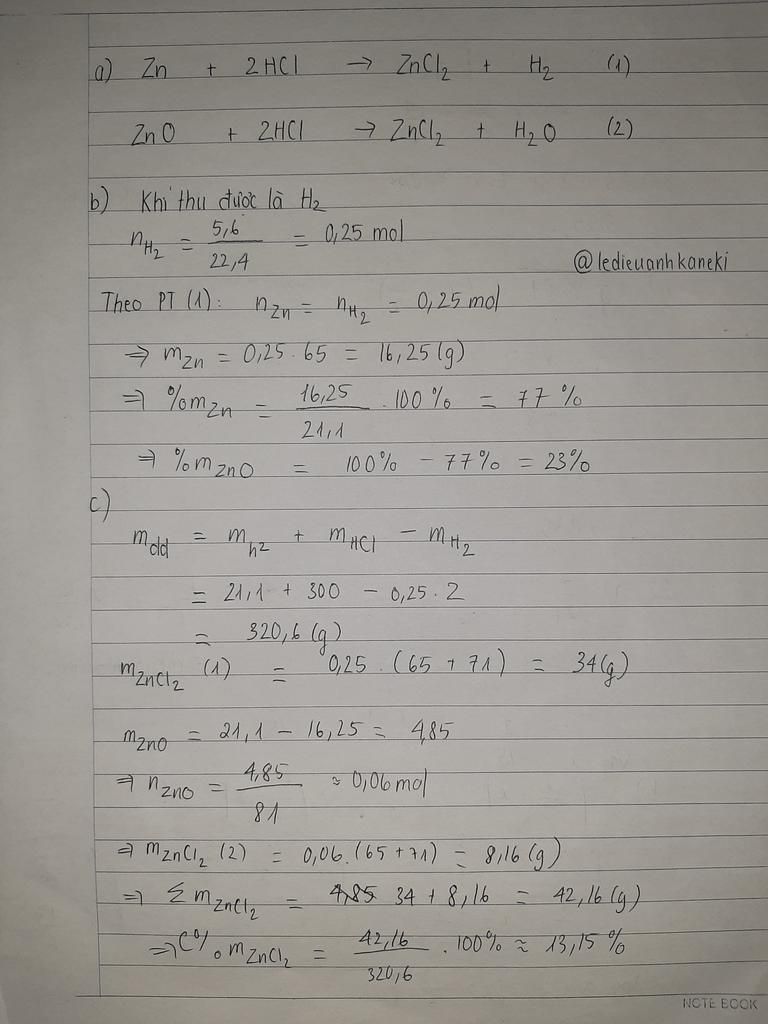 a) Zn + 2HCl → ZnCl₂ + H₂ (1)
ZnO + 2HCl → ZnCl₂ + H₂O (2)
b) Khí thu được là H₂
n_H₂ = 5,6/22,4 = 0,25 mol
@ledieuanhkaneki
Theo PT (1): n_Zn = n_H₂ = 0,25 mol
⇒ m_Zn = 0,25 . 65 = 16,25 (g)
⇒ %m_Zn = 16,25/21,1 . 100% = 77%
⇒ %m_ZnO = 100% - 77% = 23%
c)
m_dd = m_h² + m_HCl - m_H₂
= 21,1 + 300 - 0,25 . 2
= 320,6 (g)
m_ZnCl₂ (1) = 0,25 . (65 + 71) = 34 (g)
m_ZnO = 21,1 - 16,25 = 4,85
⇒ n_ZnO = 4,85/81 ≈ 0,06 mol
⇒ m_ZnCl₂ (2) = 0,06 . (65 + 71) = 8,16 (g)
⇒ Σ m_ZnCl₂ = 4,85 34 + 8,16 = 42,16 (g)
⇒ C% m_ZnCl₂ = 42,16/320,6 . 100% ≈ 13,15 %
NOTE BOOK